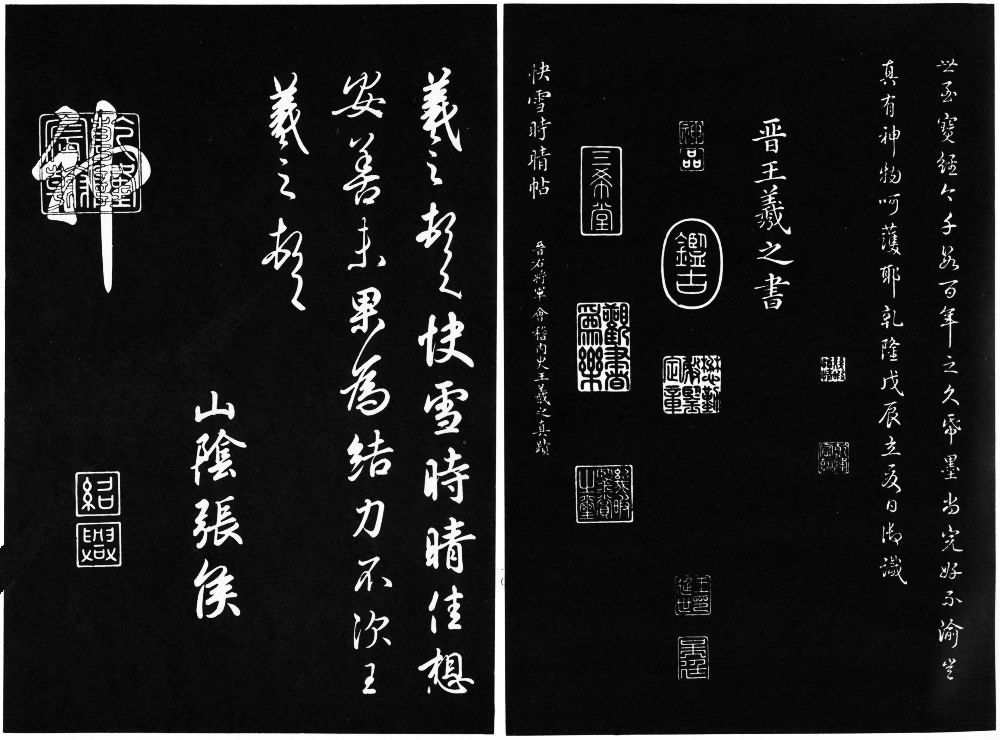 世至寶經今千數百年之久帋墨尚完好不渝豈
真有神物呵護耶乾隆戊辰立夏日御識
晋王羲之書
神品
鑑古
三希堂
觀書為樂
快雪時晴帖
晉右將軍會稽內史王羲之真蹟
羲之頓首快雪時晴佳想
安善未果為結力不次王
羲之頓首
山陰張侯
神
乾隆宸翰
紹興